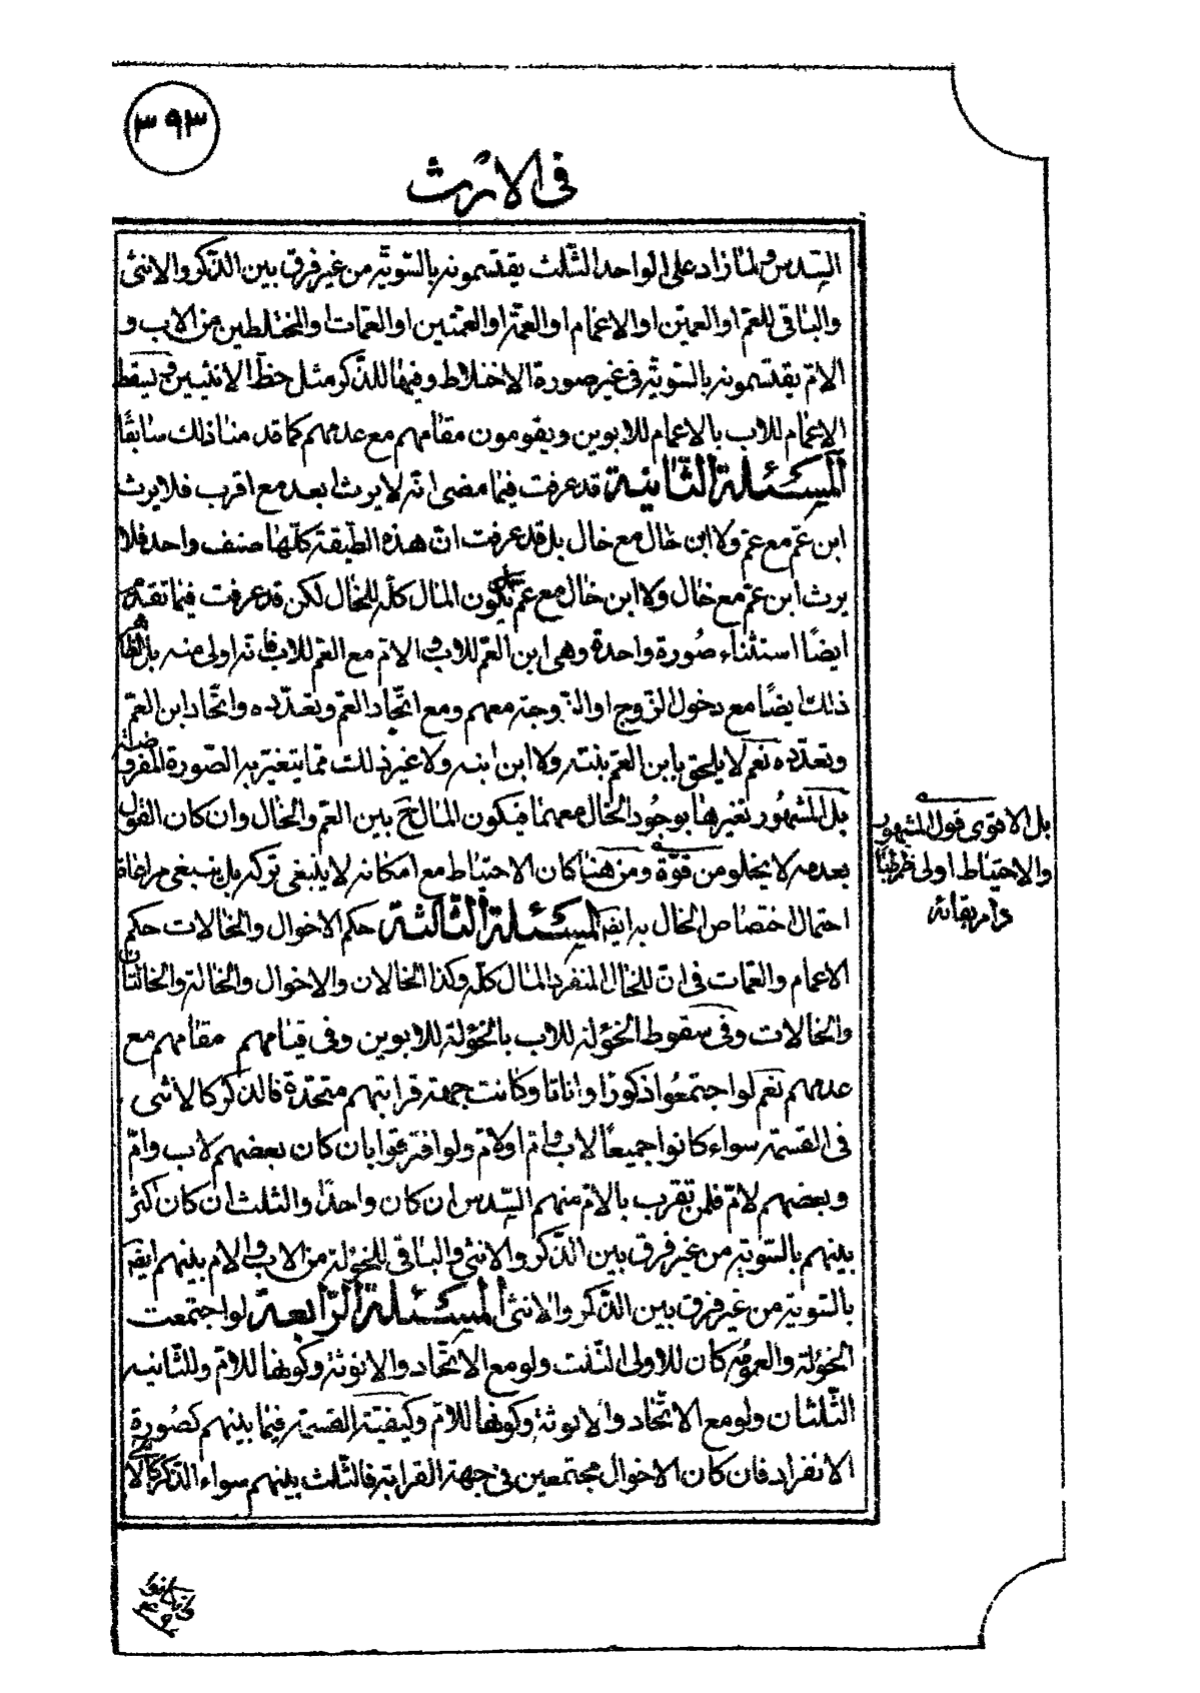 ٣٩٣
في الارث
السّدس ولما زاد على الواحد الثّلث يقتسمونه بالسّويّة من غير فرق بين الذّكر والانثى
والباقى للعمّ او العمّين او الاعمام او العمّة او العمّتين او العمّات او المختلطين من الاب و
الامّ يقتسمونه بالسّويّة فى غير صورة الاختلاط وفيها للذّكر مثل حظّ الانثيين ويسقط
الاعمام للاب بالاعمام للابوين ويقومون مقامهم مع عدمهم كما قدمنا ذلك سابقًا
المسئلة الثّانية قد عرفت فيما مضى انّه لا يرث ابعد مع اقرب فلا يرث
ابن عمّ مع عمّ ولا ابن خال مع خال بل قد عرفت انّ هذه الطّبقة كلّها صنف واحد فلا
يرث ابن عمّ مع خال ولا ابن خال مع عمّ فيكون المال كلّه للخال لكن قد عرفت فيما تقدّم
ايضًا استثناء صورة واحدة وهى ابن العمّ للاب والامّ مع العمّ للاب فانّه اولى منه بل الظّاهر
ذلك ايضًا مع دخول الزّوج او الزّوجة معهم ومع اتّحاد العمّ وتعدّده واتّحاد ابن العمّ
وتعدّده نعم لا يلحق بابن العمّ بنته ولا ابن ابنه ولا غير ذلك ممّا يتغيّر به الصّورة المفروضة
بل المشهور تغيّرها بوجود الخال معهما فيكون المال ح بين العمّ والخال وان كان القول
بعدمه لا يخلو من قوّة ومن هنا كان الاحتياط مع امكانه لا ينبغى تركه بل ينبغى مراعاة
احتمال اختصاص الخال به ايضا المسئلة الثّالثة حكم الاخوال والخالات حكم
الاعمام والعمّات فى انّ للخال المنفرد المال كلّه وكذا الخالان والاخوال والخالة والخالتان
والخالات وفى سقوط الخؤلة للاب بالخؤلة للابوين وفى قيامهم مقامهم مع
عدمهم نعم لو اجتمعوا ذكورًا واناثا وكانت جهة قرابتهم متّحدة فالذكر كالانثى
فى القسمة سواء كانوا جميعًا لاب وامّ او لامّ ولو افترقوا بان كان بعضهم لاب وامّ
وبعضهم لامّ فلمن تقرب بالامّ منهم السّدس ان كان واحدًا والثلث ان كان اكثر
بينهم بالسّوية من غير فرق بين الذّكر والانثى والباقى للخؤلة من الاب والام بينهم ايضا
بالسّوية من غير فرق بين الذّكر والانثى المسئلة الرّابعة لو اجتمعت
الخؤلة والعمومة كان للاولى الثّلث ولو مع الاتّحاد والانوثة وكونها للامّ وللثّانية
الثّلثان ولو مع الاتّحاد والانوثة وكونها للامّ وكيفيّة القسمة فيما بينهم كصورة
الانفراد فان كان الاخوال مجتمعين فى جهة القرابة فالثّلث بينهم سواء الذّكر كالانثى
بل الاقوى قول المشهور
والاحتياط اولى ظ طبا
دام بقائه